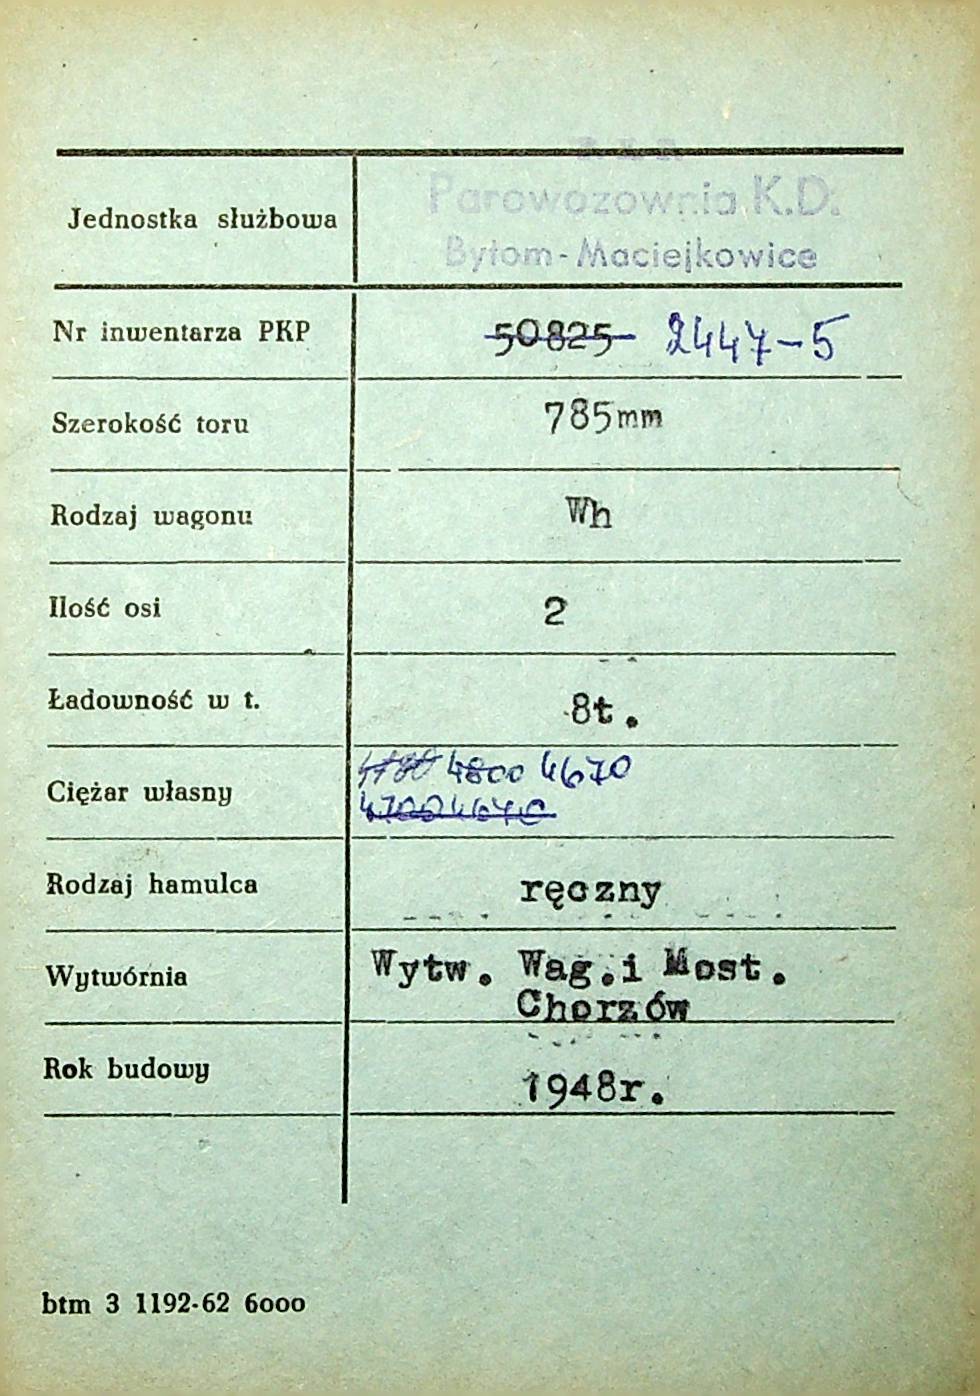 P. K. P.
Jednostka służbowa Parowozownia K.D.
Bytom-Maciejkowice
Nr inwentarza PKP 50825 2447-5
Szerokość toru 785mm
Rodzaj wagonu Wh
Ilość osi 2
Ładowność w t. 8t.
Ciężar własny 4800 4670
4700 4640
Rodzaj hamulca ręczny
Wytwórnia Wytw. Wag.i Most.
Chorzów
Rok budowy 1948r.
btm 3 1192-62 6000